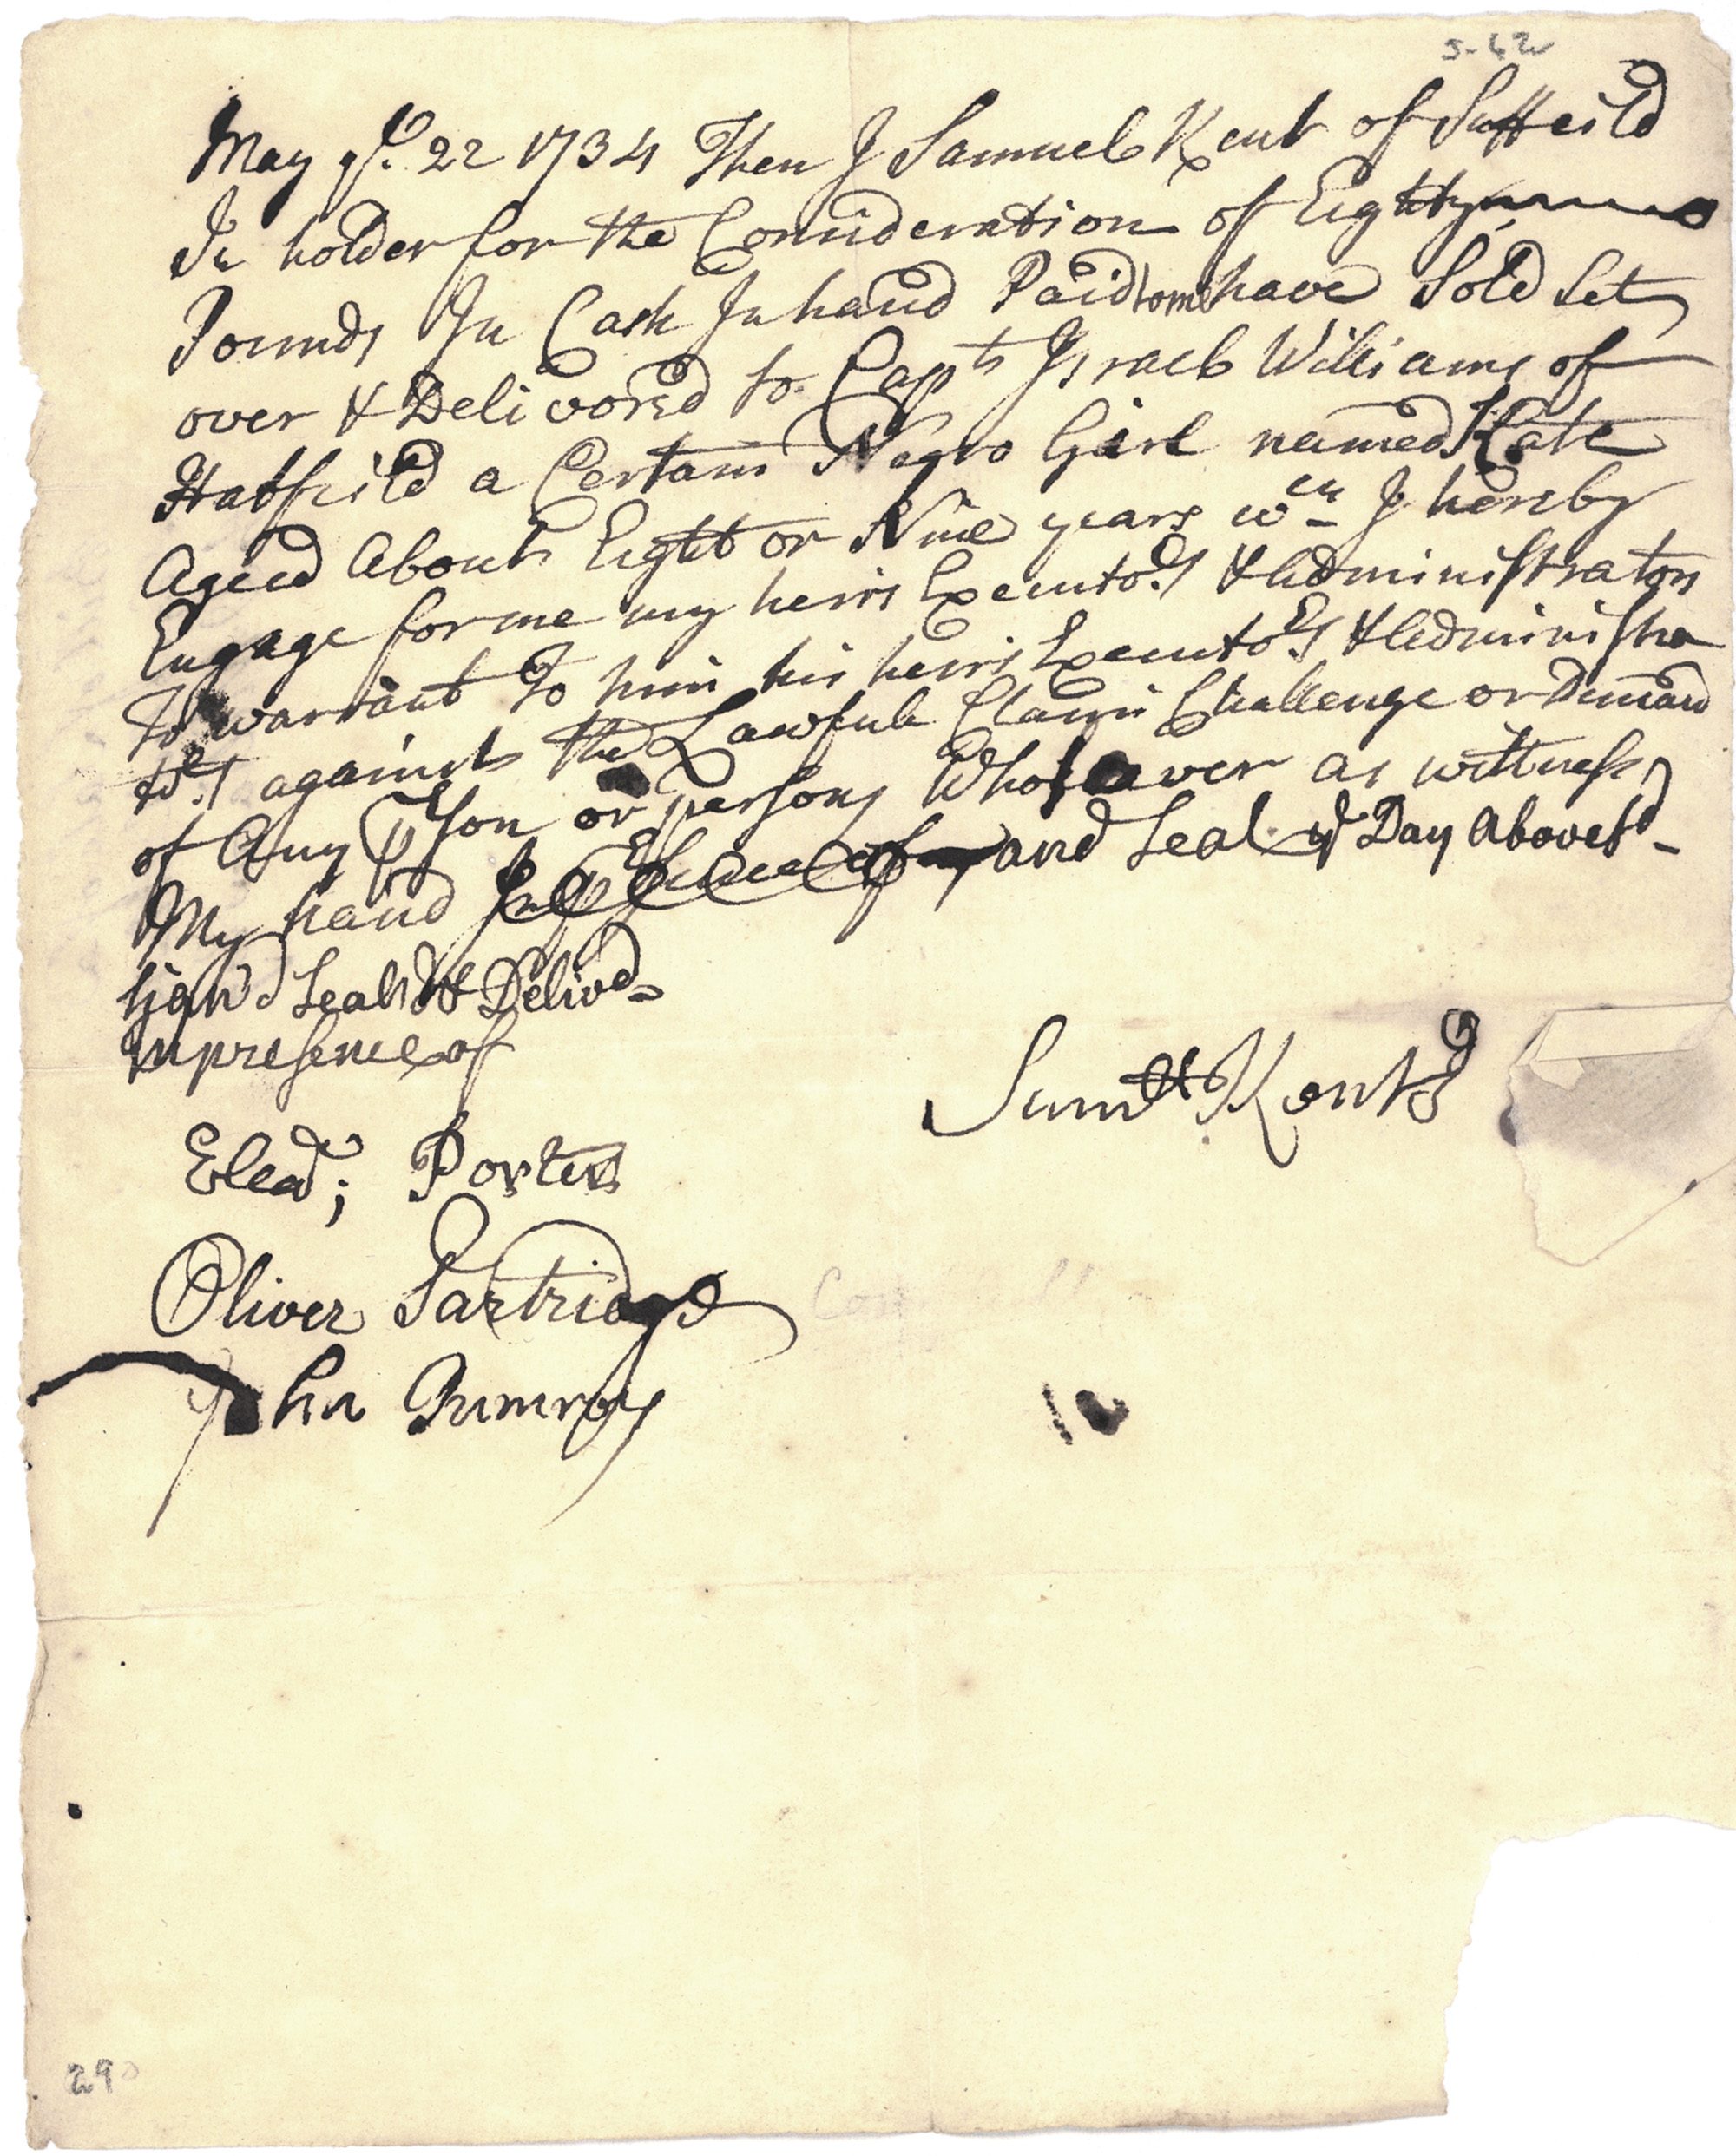 5-42
May ye. 22 1734 Then I Samuel Kent of Suffeild
In holder for the Consideration of Eighty
Pounds In Cash In hand Paid to me have Sold Set
over & Delivored to Capt Israel Williams of
Hatfeild a Certain Negro Girl named Kate
Aged About Eight or Nine years wch I hereby
Engage for me my heirs Executors & Administrators
To warrant To him his heirs Executors & Administra
tors against the Lawfull Claim Challenge or Demand
of Any pson or persons Whosoever as wittness
My hand and Seal ye Day Abovesd
Sign'd Seal'd & Delivd
in presence of
Samll Kent
Elead; Porter
Oliver Partridge
John Pumroy
290